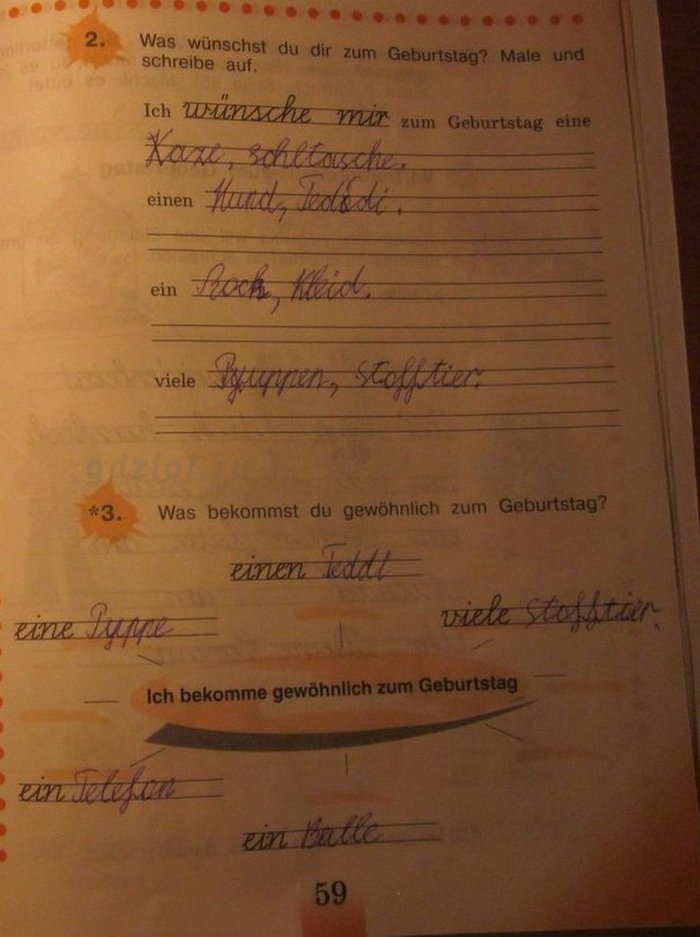 2. Was wünschst du dir zum Geburtstag? Male und
schreibe auf.
Ich wünsche mir zum Geburtstag eine
Kaze, schltasche.
einen Hund, Teddi.
ein Rock, Kleid.
viele Puppen, Stofftier.
*3. Was bekommst du gewöhnlich zum Geburtstag?
einen Teddi
eine Puppe
viele Stofftier.
Ich bekomme gewöhnlich zum Geburtstag
ein Telefon
ein Balle
59